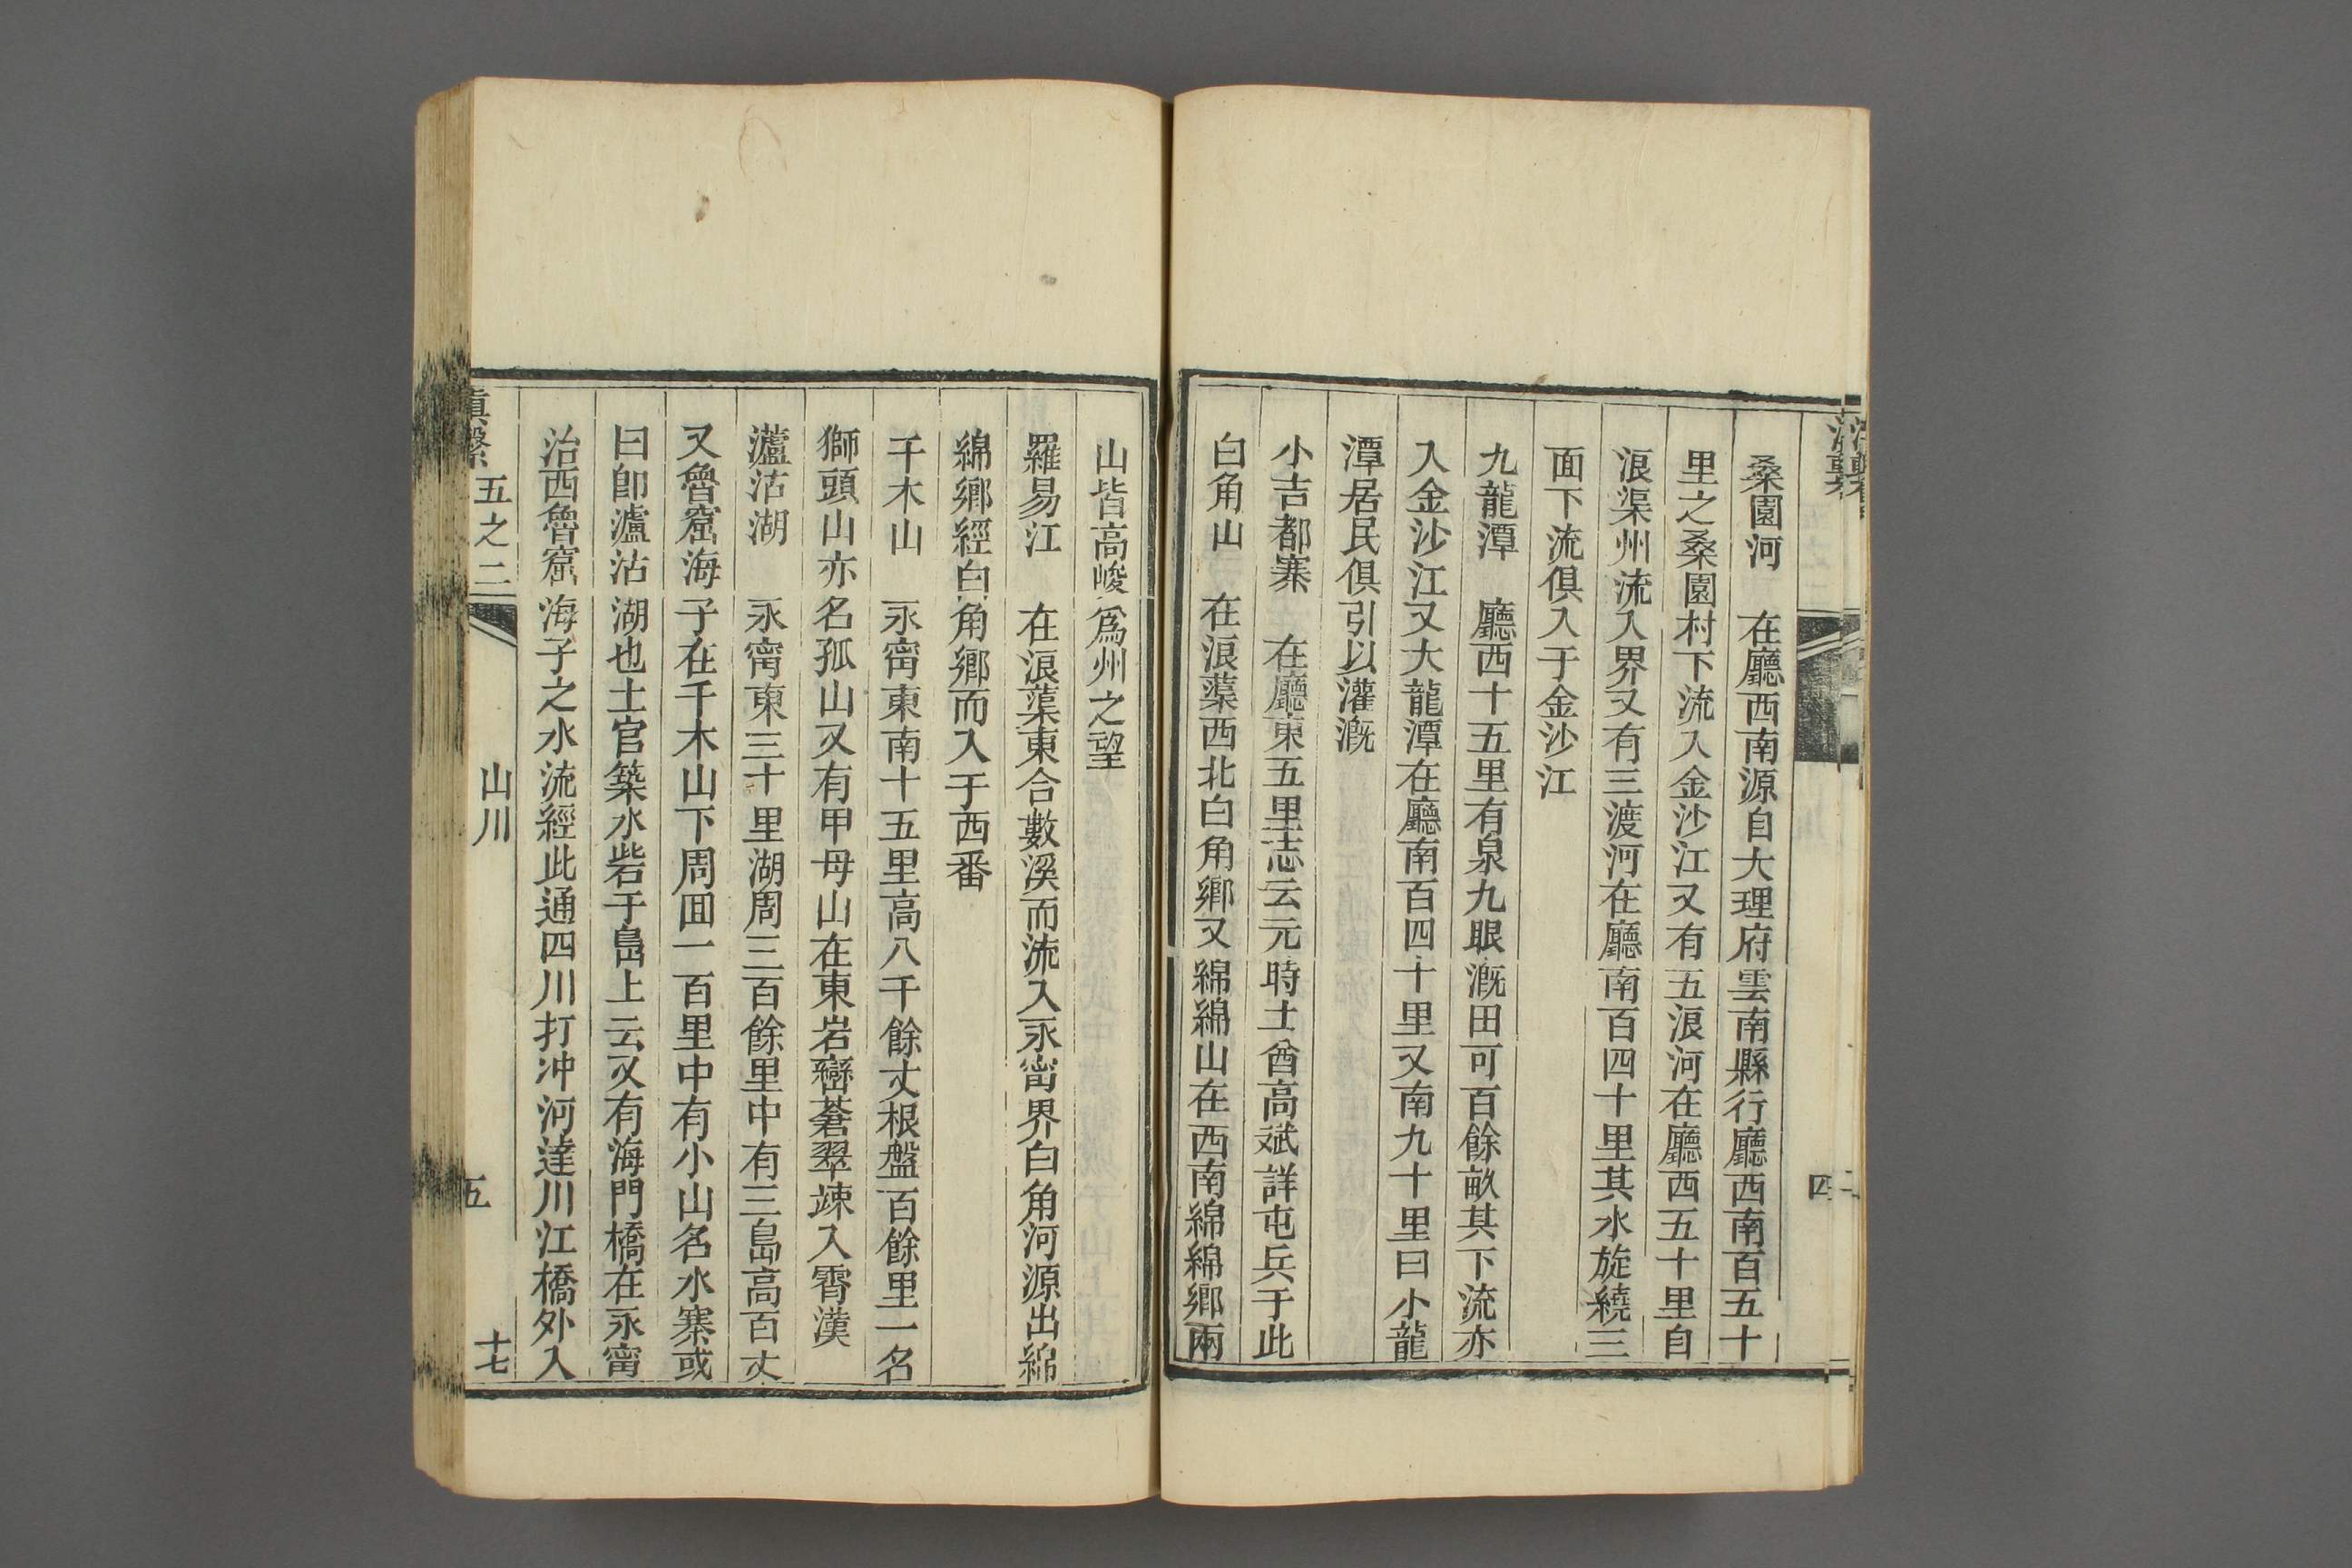 桑園河　在廳西南源自大理府雲南縣行廳西南百五十
里之桑園村下流入金沙江又有五浪河在廳西五十里自
浪渠州流入界又有三渡河在廳南百四十里其水旋繞三
面下流俱入于金沙江
九龍潭　廳西十五里有泉九眼漑田可百餘畝其下流亦
入金沙江又大龍潭在廳南百四十里又南九十里曰小龍
潭居民俱引以灌漑
小吉都寨　在廳東五里志云元時土酋高斌詳屯兵于此
白角山　在浪蕖西北白角鄉又綿綿山在西南綿綿鄉兩
山皆高峻爲州之望
羅易江　在浪蕖東合數溪而流入永甯界白角河源出綿
綿鄉經白角鄉而入于西番
千木山　永甯東南十五里高八千餘丈根盤百餘里一名
獅頭山亦名孤山又有甲母山在東岩巒蒼翠竦入霄漢
瀘沽湖　永甯東三十里湖周三百餘里中有三島高百丈
又魯窟海子在千木山下周囬一百里中有小山名水寨或
曰卽瀘沽湖也土官築水砦于島上云又有海門橋在永甯
治西魯窟海子之水流經此通四川打沖河達川江橋外入
滇繫　五之二　山川　五　十七
四